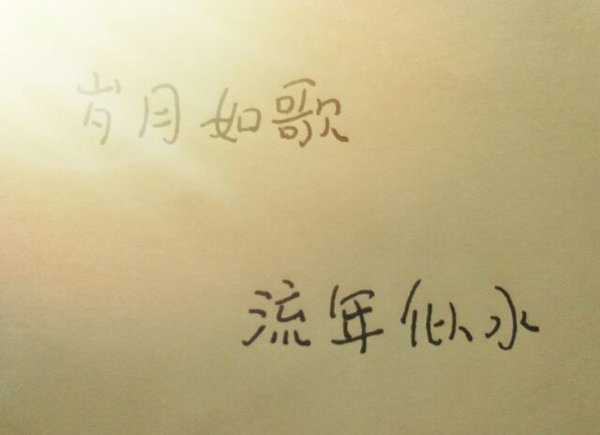 岁月如歌
流年似水